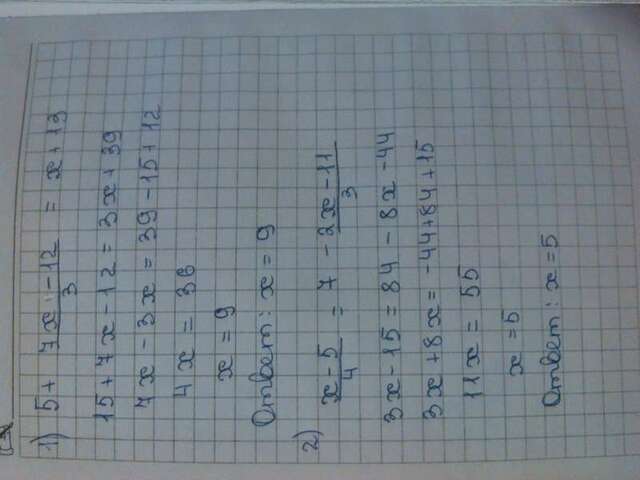 1) 5 + 7x - 12 / 3 = x + 13
15 + 7x - 12 = 3x + 39
7x - 3x = 39 - 15 + 12
4x = 36
x = 9
Ответ: x = 9
2) x - 5 / 4 = 7 - 2x - 11 / 3
3x - 15 = 84 - 8x - 44
3x + 8x = -44 + 84 + 15
11x = 55
x = 5
Ответ: x = 5